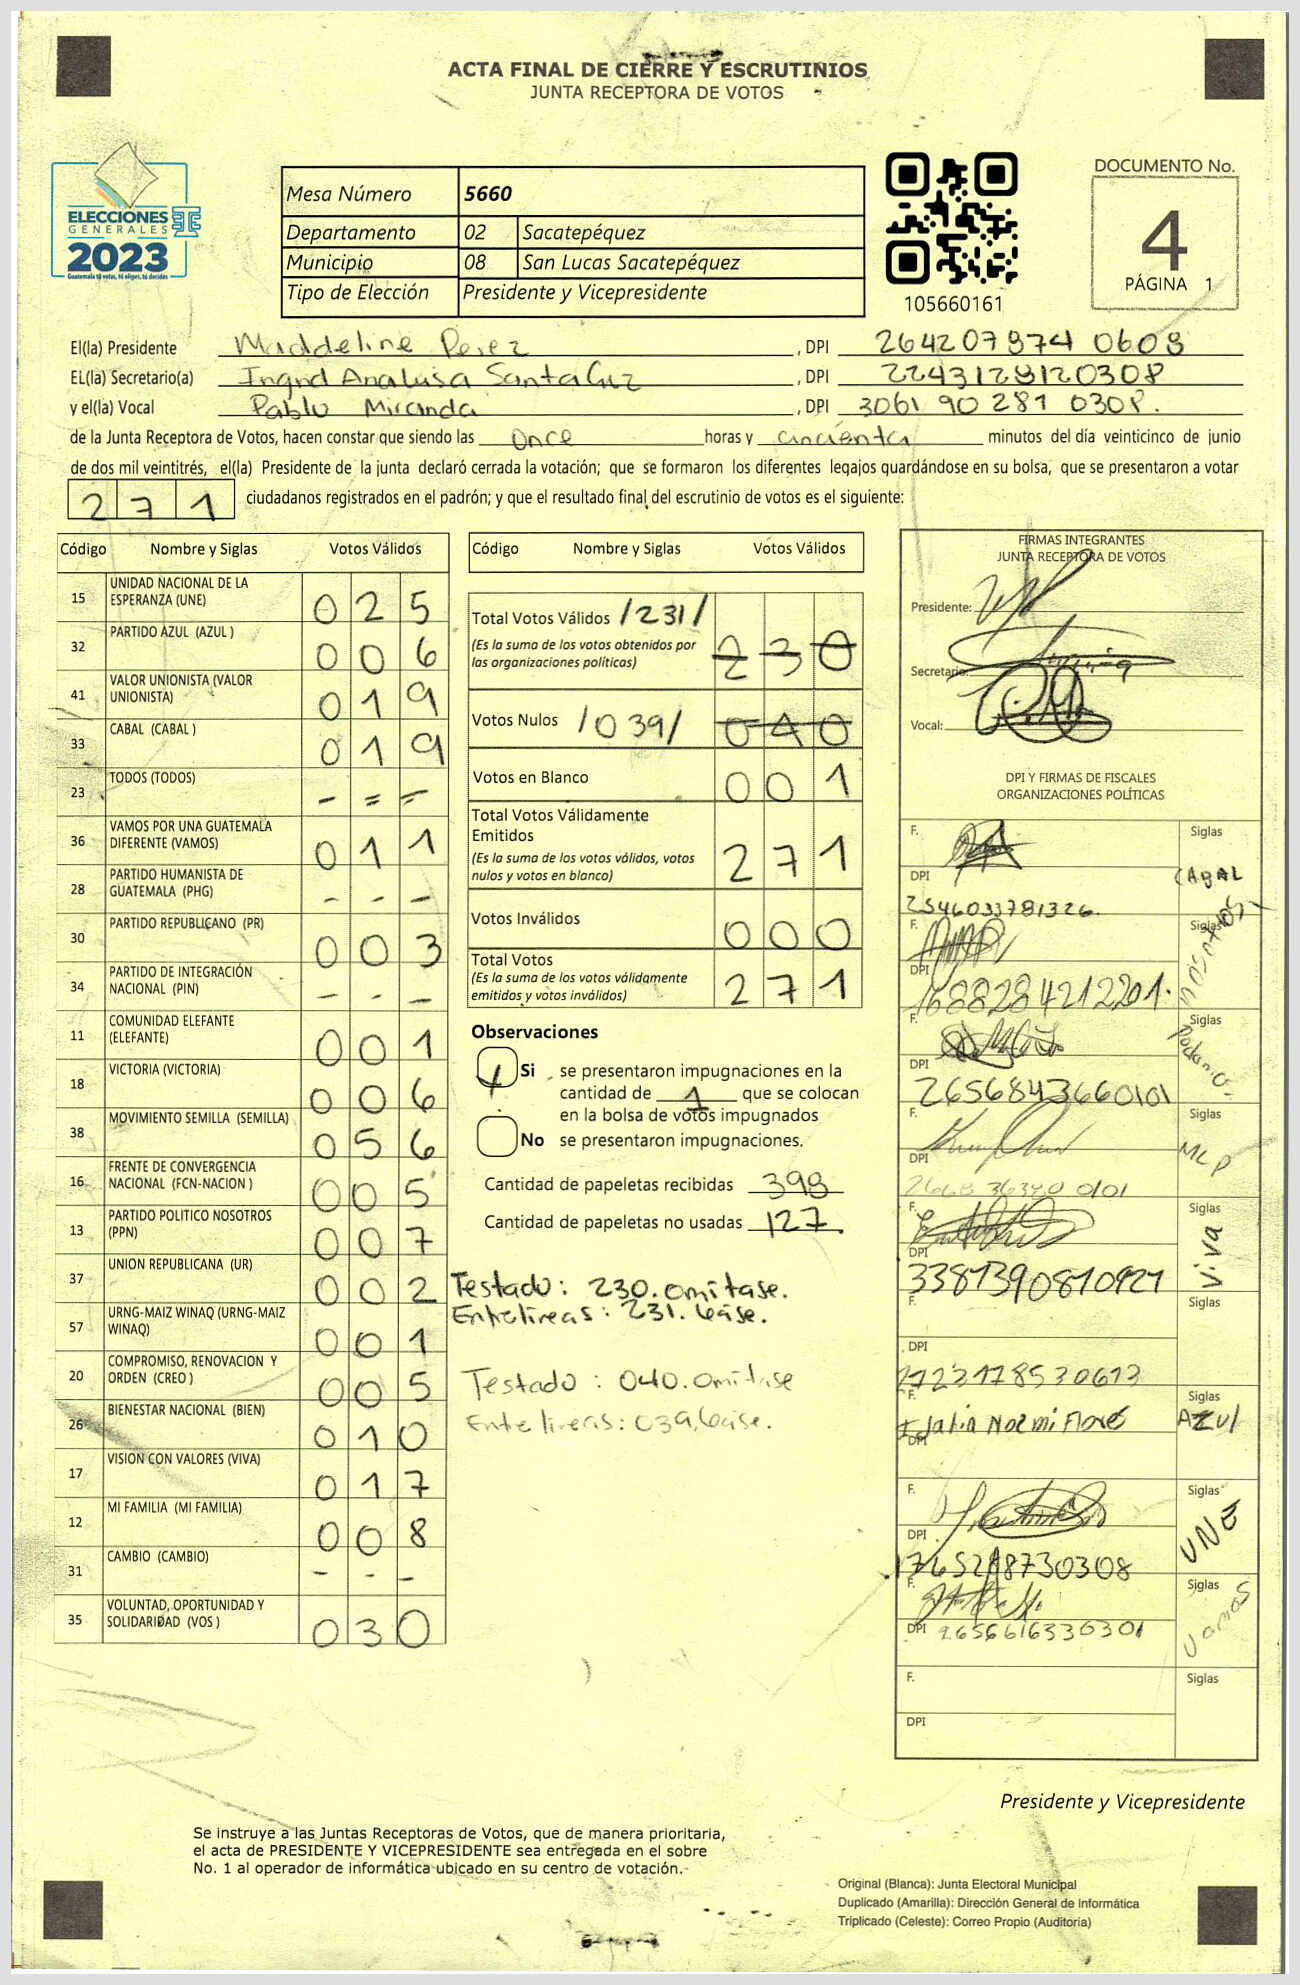 ACTA FINAL DE CIERRE Y ESCRUTINIOS
JUNTA RECEPTORA DE VOTOS
ELECCIONES
GENERALES
2023
Guatemala tú votas, tú eliges, tú decides
Mesa Número 5660
Departamento 02 Sacatepéquez
Municipio 08 San Lucas Sacatepéquez
Tipo de Elección Presidente y Vicepresidente
105660161
DOCUMENTO No.
4
PÁGINA 1
El(la) Presidente Maddeline Perez , DPI 264207974 0608
EL(la) Secretario(a) Ingrid Analuisa Santa Cruz , DPI
y el(la) Vocal Pablo Miranda , DPI 3061 90 281
de la Junta Receptora de Votos, hacen constar que siendo las Once horas y cincuenta minutos del día veinticinco de junio
de dos mil veintitrés, el(la) Presidente de la junta declaró cerrada la votación; que se formaron los diferentes legajos guardándose en su bolsa, que se presentaron a votar
271 ciudadanos registrados en el padrón; y que el resultado final del escrutinio de votos es el siguiente:
Código Nombre y Siglas Votos Válidos
15 UNIDAD NACIONAL DE LA ESPERANZA (UNE) 025
32 PARTIDO AZUL (AZUL ) 006
41 VALOR UNIONISTA (VALOR UNIONISTA) 019
33 CABAL (CABAL ) 019
23 TODOS (TODOS) - = =
36 VAMOS POR UNA GUATEMALA DIFERENTE (VAMOS) 011
28 PARTIDO HUMANISTA DE GUATEMALA (PHG) - - -
30 PARTIDO REPUBLICANO (PR) 003
34 PARTIDO DE INTEGRACIÓN NACIONAL (PIN) - - -
11 COMUNIDAD ELEFANTE (ELEFANTE) 001
18 VICTORIA (VICTORIA) 006
38 MOVIMIENTO SEMILLA (SEMILLA) 056
16 FRENTE DE CONVERGENCIA NACIONAL (FCN-NACION ) 005
13 PARTIDO POLITICO NOSOTROS (PPN) 007
37 UNION REPUBLICANA (UR) 002
57 URNG-MAIZ WINAQ (URNG-MAIZ WINAQ) 001
20 COMPROMISO, RENOVACION Y ORDEN (CREO ) 005
26 BIENESTAR NACIONAL (BIEN) 010
17 VISION CON VALORES (VIVA) 017
12 MI FAMILIA (MI FAMILIA) 008
31 CAMBIO (CAMBIO) - - -
35 VOLUNTAD, OPORTUNIDAD Y SOLIDARIDAD (VOS ) 030
Código Nombre y Siglas Votos Válidos
Total Votos Válidos /231/ 230
(Es la suma de los votos obtenidos por las organizaciones políticas)
Votos Nulos /039/ 040
Votos en Blanco 001
Total Votos Válidamente Emitidos 271
(Es la suma de los votos válidos, votos nulos y votos en blanco)
Votos Inválidos 000
Total Votos 271
(Es la suma de los votos válidamente emitidos y votos inválidos)
Observaciones
Si se presentaron impugnaciones en la
cantidad de 1 que se colocan
en la bolsa de votos impugnados
No se presentaron impugnaciones.
Cantidad de papeletas recibidas 398
Cantidad de papeletas no usadas 127
Testado: 230. omitase.
Entrelineas: 231. léase.
Testado: 040. omitase
Entrelineas: 039. léase.
FIRMAS INTEGRANTES
JUNTA RECEPTORA DE VOTOS
Presidente:
Secretario:
Vocal:
DPI Y FIRMAS DE FISCALES
ORGANIZACIONES POLÍTICAS
F. Siglas
DPI 2546033781326 CABAL
F. Siglas
DPI 1688284212201
F. Siglas
DPI 2656843660101
F. Siglas
DPI MLP
F. Siglas
DPI Viva
F. Siglas
DPI
F. Siglas
Noemi Flores AZUL
DPI
F. Siglas
DPI UNE
F. Siglas
DPI 2656616330301 Vamos
F. Siglas
DPI
Presidente y Vicepresidente
Se instruye a las Juntas Receptoras de Votos, que de manera prioritaria,
el acta de PRESIDENTE Y VICEPRESIDENTE sea entregada en el sobre
No. 1 al operador de informática ubicado en su centro de votación.
Original (Blanca): Junta Electoral Municipal
Duplicado (Amarilla): Dirección General de Informática
Triplicado (Celeste): Correo Propio (Auditoría)